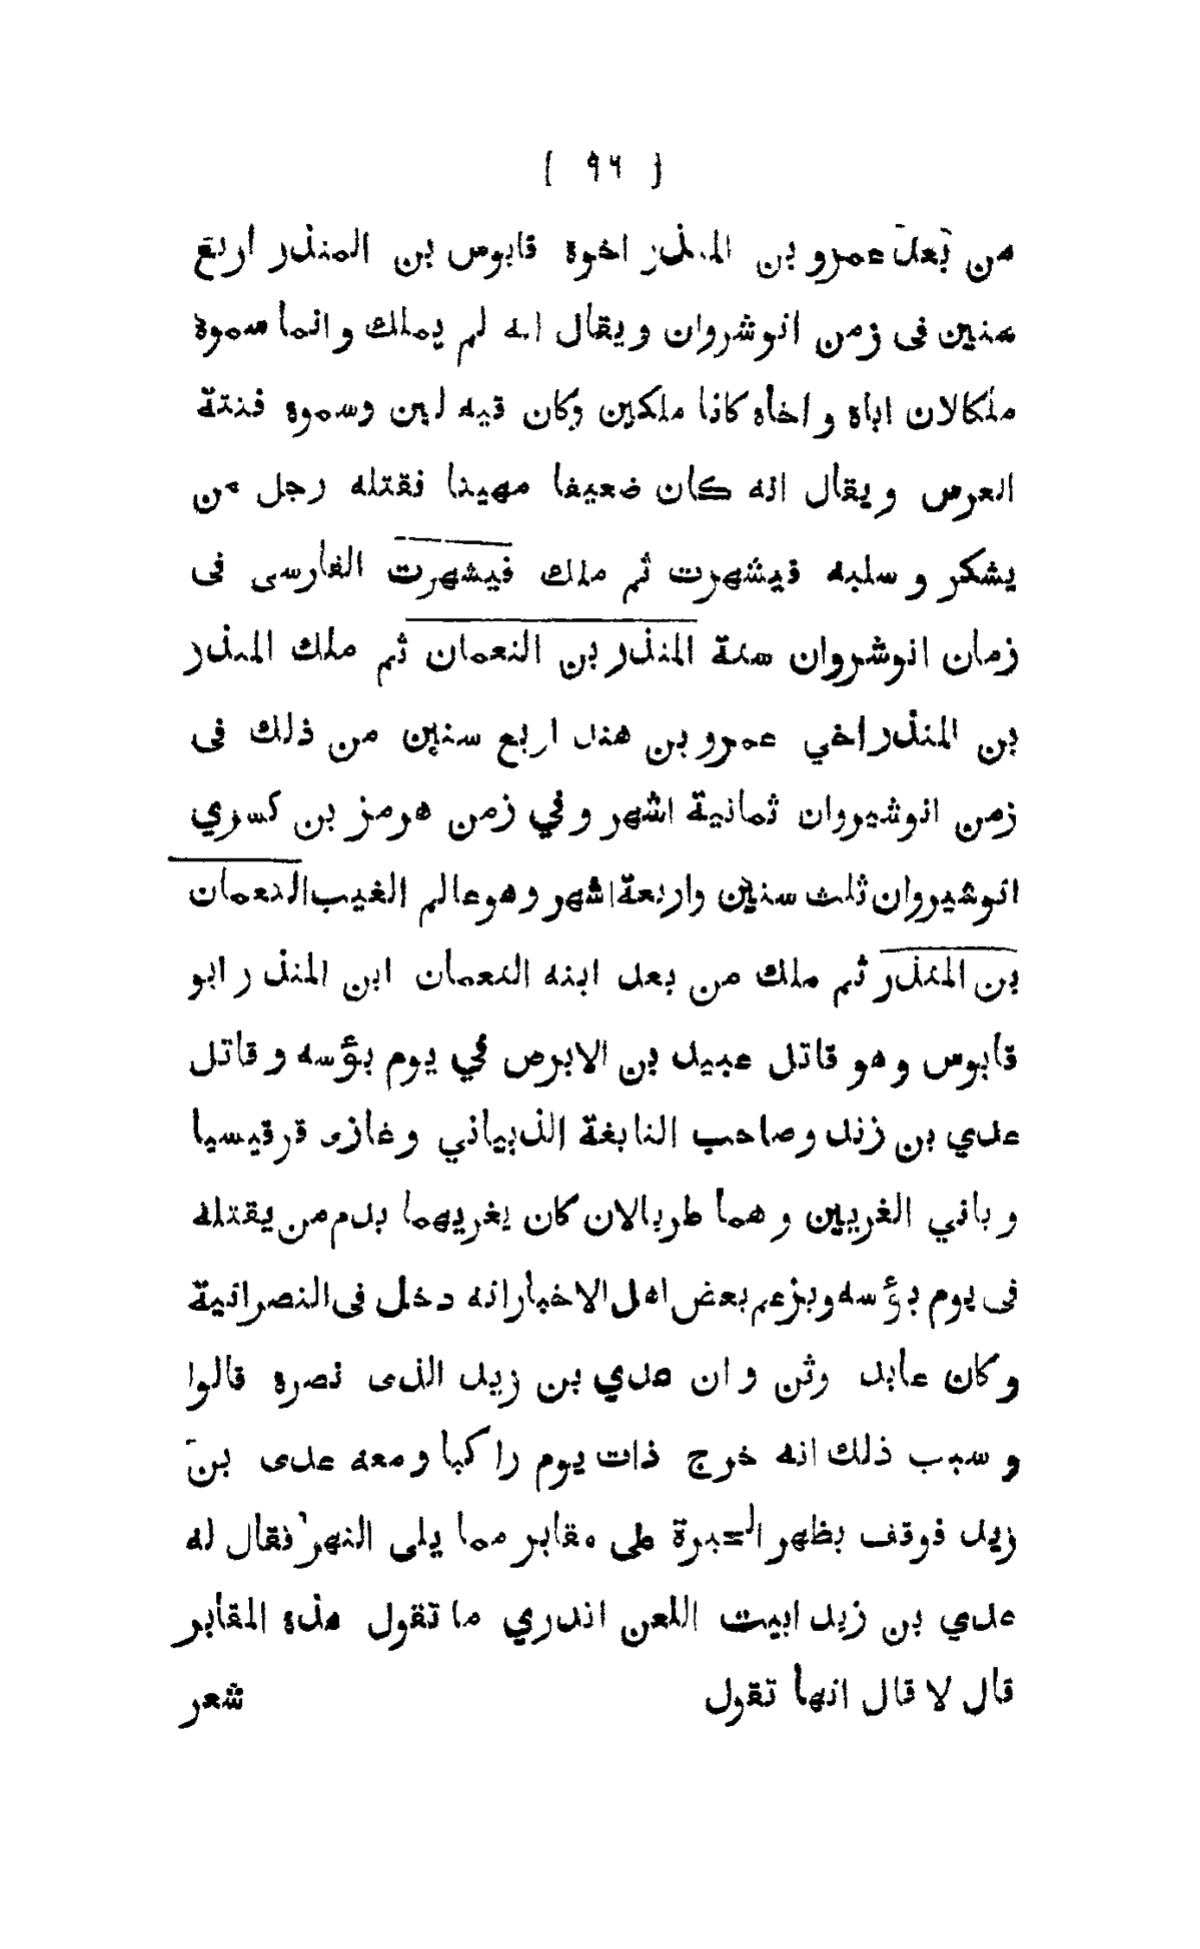 ( ٩٦ )
من بعد عمرو بن المنذر اخوة قابوس بن المنذر اربع
سنين فى زمن انوشروان ويقال انه لم يملك وانما سموة
ملكالان اباة واخاه كانا ملكين وكان فيه لين وسموه فتنة
العرس ويقال انه كان ضعيفا مهينا فقتله رجل من
يشكر وسلبه فيشهرت ثم ملك فيشهرت الفارسى فى
زمان انوشروان سنة المنذر بن النعمان ثم ملك المنذر
بن المنذر اخي عمرو بن هند اربع سنين من ذلك فى
زمن انوشيروان ثمانية اشهر وفي زمن هرمز بن كسري
انوشيروان ثلث سنين واربعة اشهر وهو عالم الغيب النعمان
بن المنذر ثم ملك من بعد ابنه النعمان ابن المنذر ابو
قابوس وهو قاتل عبيد بن الابرص في يوم بؤسه وقاتل
عدي بن زند وصاحب النابغة الذبياني وغازى قرقيسيا
وباني الغريين وهما طربالان كان يغريهما بدم من يقتله
فى يوم بؤسه وبزعم بعض اهل الاخبار انه دخل فى النصرانية
وكان عابد وثن وان عدي بن زيد الذى نصره قالوا
وسبب ذلك انه خرج ذات يوم راكبا ومعه عدى بن
زيد فوقف بظهر الحيرة على مقابر مما يلى النهر فقال له
عدي بن زيد ابيت اللعن اتدري ما تقول هذه المقابر
قال لا قال انها تقول شعر